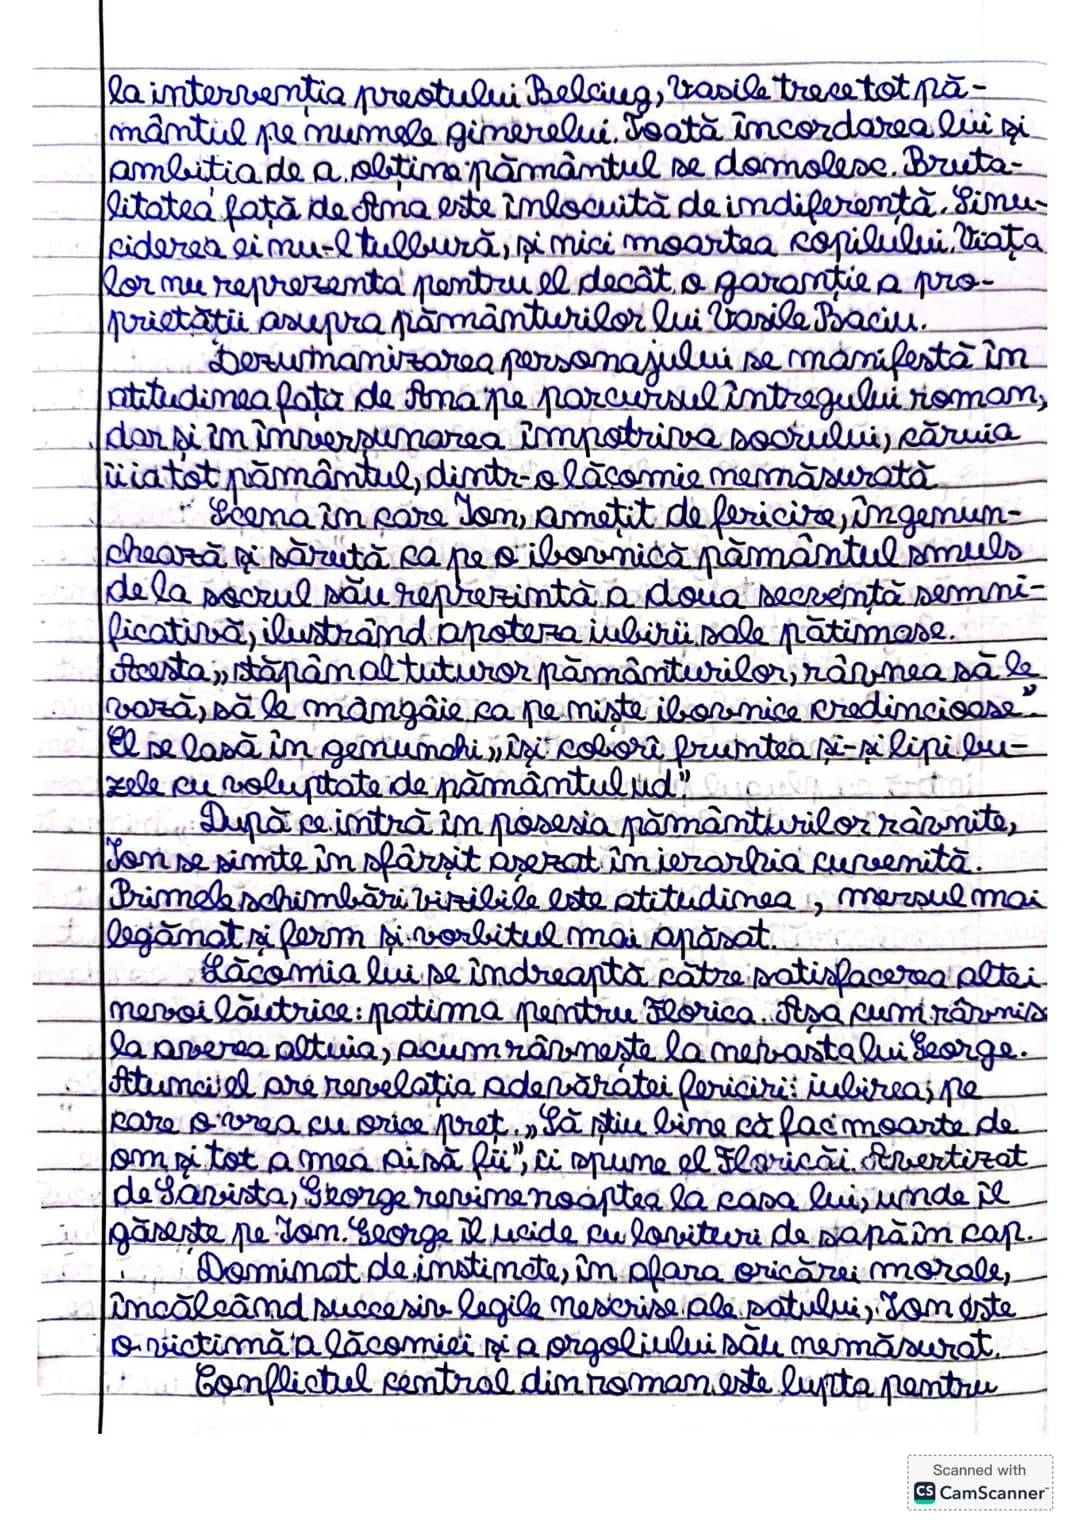 la intervenția preotului Belciug, Vasile trece tot pă-
mântul pe numele ginerelui. Toată încordarea lui și
ambitia de a obține pământul se domolesc. Bruta-
litatea față de Ana este înlocuită de indiferență. Sinu-
ciderea ei nu-l tulbură, și nici moartea copilului. Viața
lor nu reprezenta pentru el decât o garanție a pro-
prietății asupra pământurilor lui Vasile Baciu.
Dezumanizarea personajului se manifestă în
atitudinea fața de Ana pe parcursul întregului roman,
dar și in înverșunarea împotriva socrului, căruia
îi ia tot pământul, dintr-o lăcomie nemăsurată
Scena în care Ion, amețit de fericire, îngenun-
chează și sărută ca pe o ibovnică pământul smuls
de la socrul său reprezintă a doua secvență semni-
ficativă, ilustrând apoteza iubirii sale pătimase.
Acesta „stăpân al tuturor pământurilor, râvnea să le
vază, să le mângâie ca pe niște ibovnice credincioase".
El se lasă în genunchi „își coborî fruntea și-și lipi bu-
zele cu voluptate de pământul ud"
După ce intră în posesia pământurilor râvnite,
Ion se simte în sfârșit așezat în ierarhia cuvenită.
Primele schimbări vizibile este atitudinea, mersul mai
legănat și ferm și vorbitul mai apăsat.
Lăcomia lui se îndreaptă către satisfacerea altei
nevoi lăutrice: patima pentru Florica. Așa cum râvnis
la averea altuia, acum râvnește la nevasta lui George.
Atunci el are revelația adevăratei fericiri: iubirea, pe
care o vrea cu orice preț. „Să știu bine că fac moarte de
om și tot a mea ai să fii", ii spune el Floricăi. Avertizat
de Savista, George revine noaptea la casa lui, unde îl
găsește pe Ion. George îl ucide cu lovituri de sapă în cap.
Dominat de instincte, în afara oricărei morale,
încălcând succesiv legile nescrise ale satului, Ion este
o victimă a lăcomiei și a orgoliului său nemăsurat.
Conflictul central din roman este lupta pentru
Scanned with
CS CamScanner